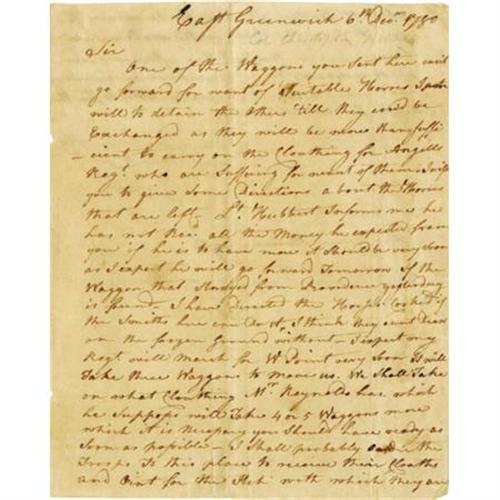 East Greenwich 6th Decr. 1780
Sir
One of the Waggons you sent here can't
go forward for want of Suitable Horses I
will to detain the others 'till they could be
Exchanged as they will be more than suffi-
cient to carry on the Cloathing for Angells
Regt. who are Suffering for want of them
you to give Some Directions about the Horses
that are left - Lt. Hubbart Informs me he
has not Recd. all the Money he expected from
you if he is to have more it Should be very Soon
as I expect he will go forward Tomorrow if the
Waggon that Strayed from Providence yesterday
is found. - I have directed the Horses
the Smiths here can do it I think they can't Draw
on the frozen Ground without - I expect my
Regt. will March for W Point very Soon I will
Take three Waggons to Move us. We Shall Take
on what Cloathing Mr. Reynolds has which
he Suppose will Take 4 or 5 Waggons more
which it is Necessary you Should have ready as
Soon as possible - I Shall probably the
Troops to this place to receive their Cloaths
and for the with which they are